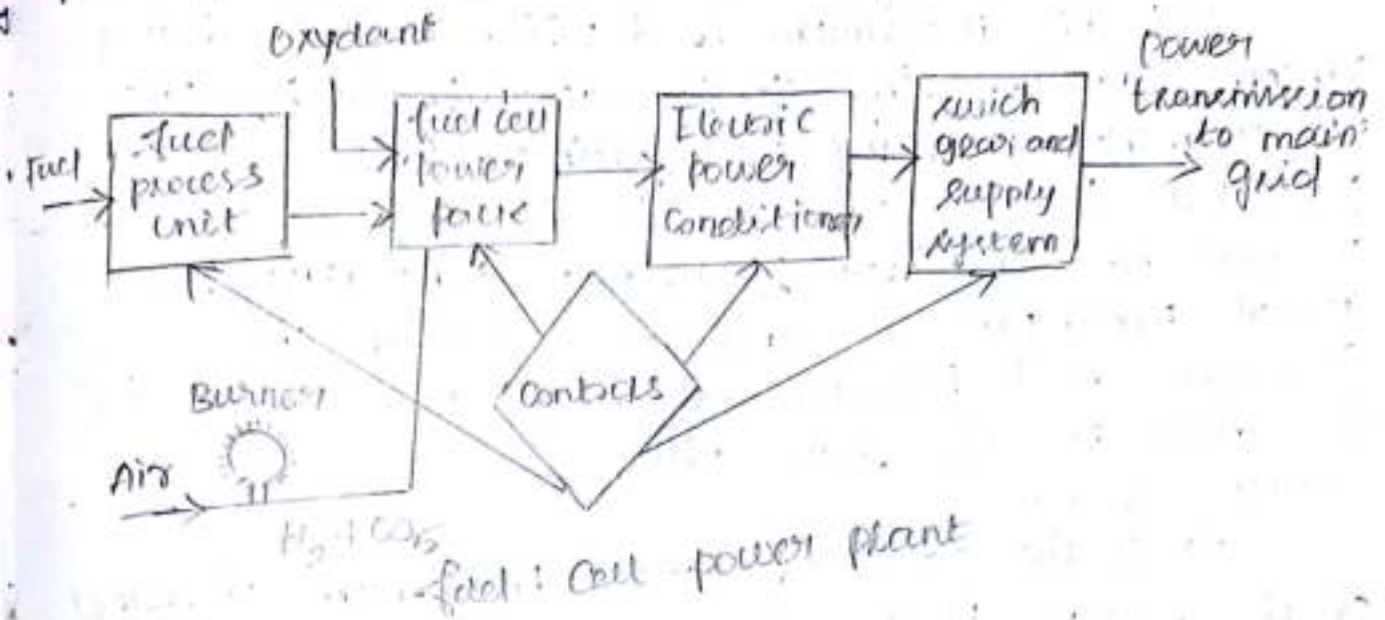 oxydant
Fuel
fuel
process
unit
fuel cell
power
pack
Electric
power
Conditioner
swich
gear and
supply
system
power
transmission
to main
grid.
Controls
Burner
Air
fuel: Cell power plant